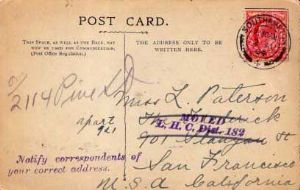 POST CARD.
THIS SPACE, AS WELL AS THE BACK, MAY
NOW BE USED FOR COMMUNICATION.
(Post Office Regulation.)
THE ADDRESS ONLY TO BE
WRITTEN HERE.
2114 Pine St
Miss L. Paterson
apart
MOVED
L.H.C. Dist. 182
901
Notify correspondents of
your correct address.
San Francisco
U.S.A California